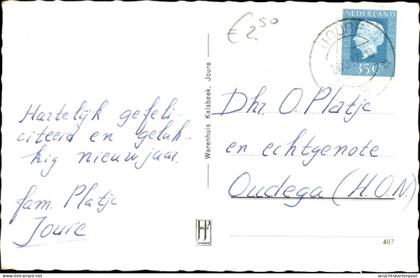 € 2.50
NEDERLAND
35 c
JOURE
Hartelijk gefeli-
citeerd en geluk-
kig nieuwjaar
fam. Platje
Joure
Warenhuis Kalsbeek, Joure
Dhr. O. Platje
en echtgenote
Oudega (H.O.N.)
467